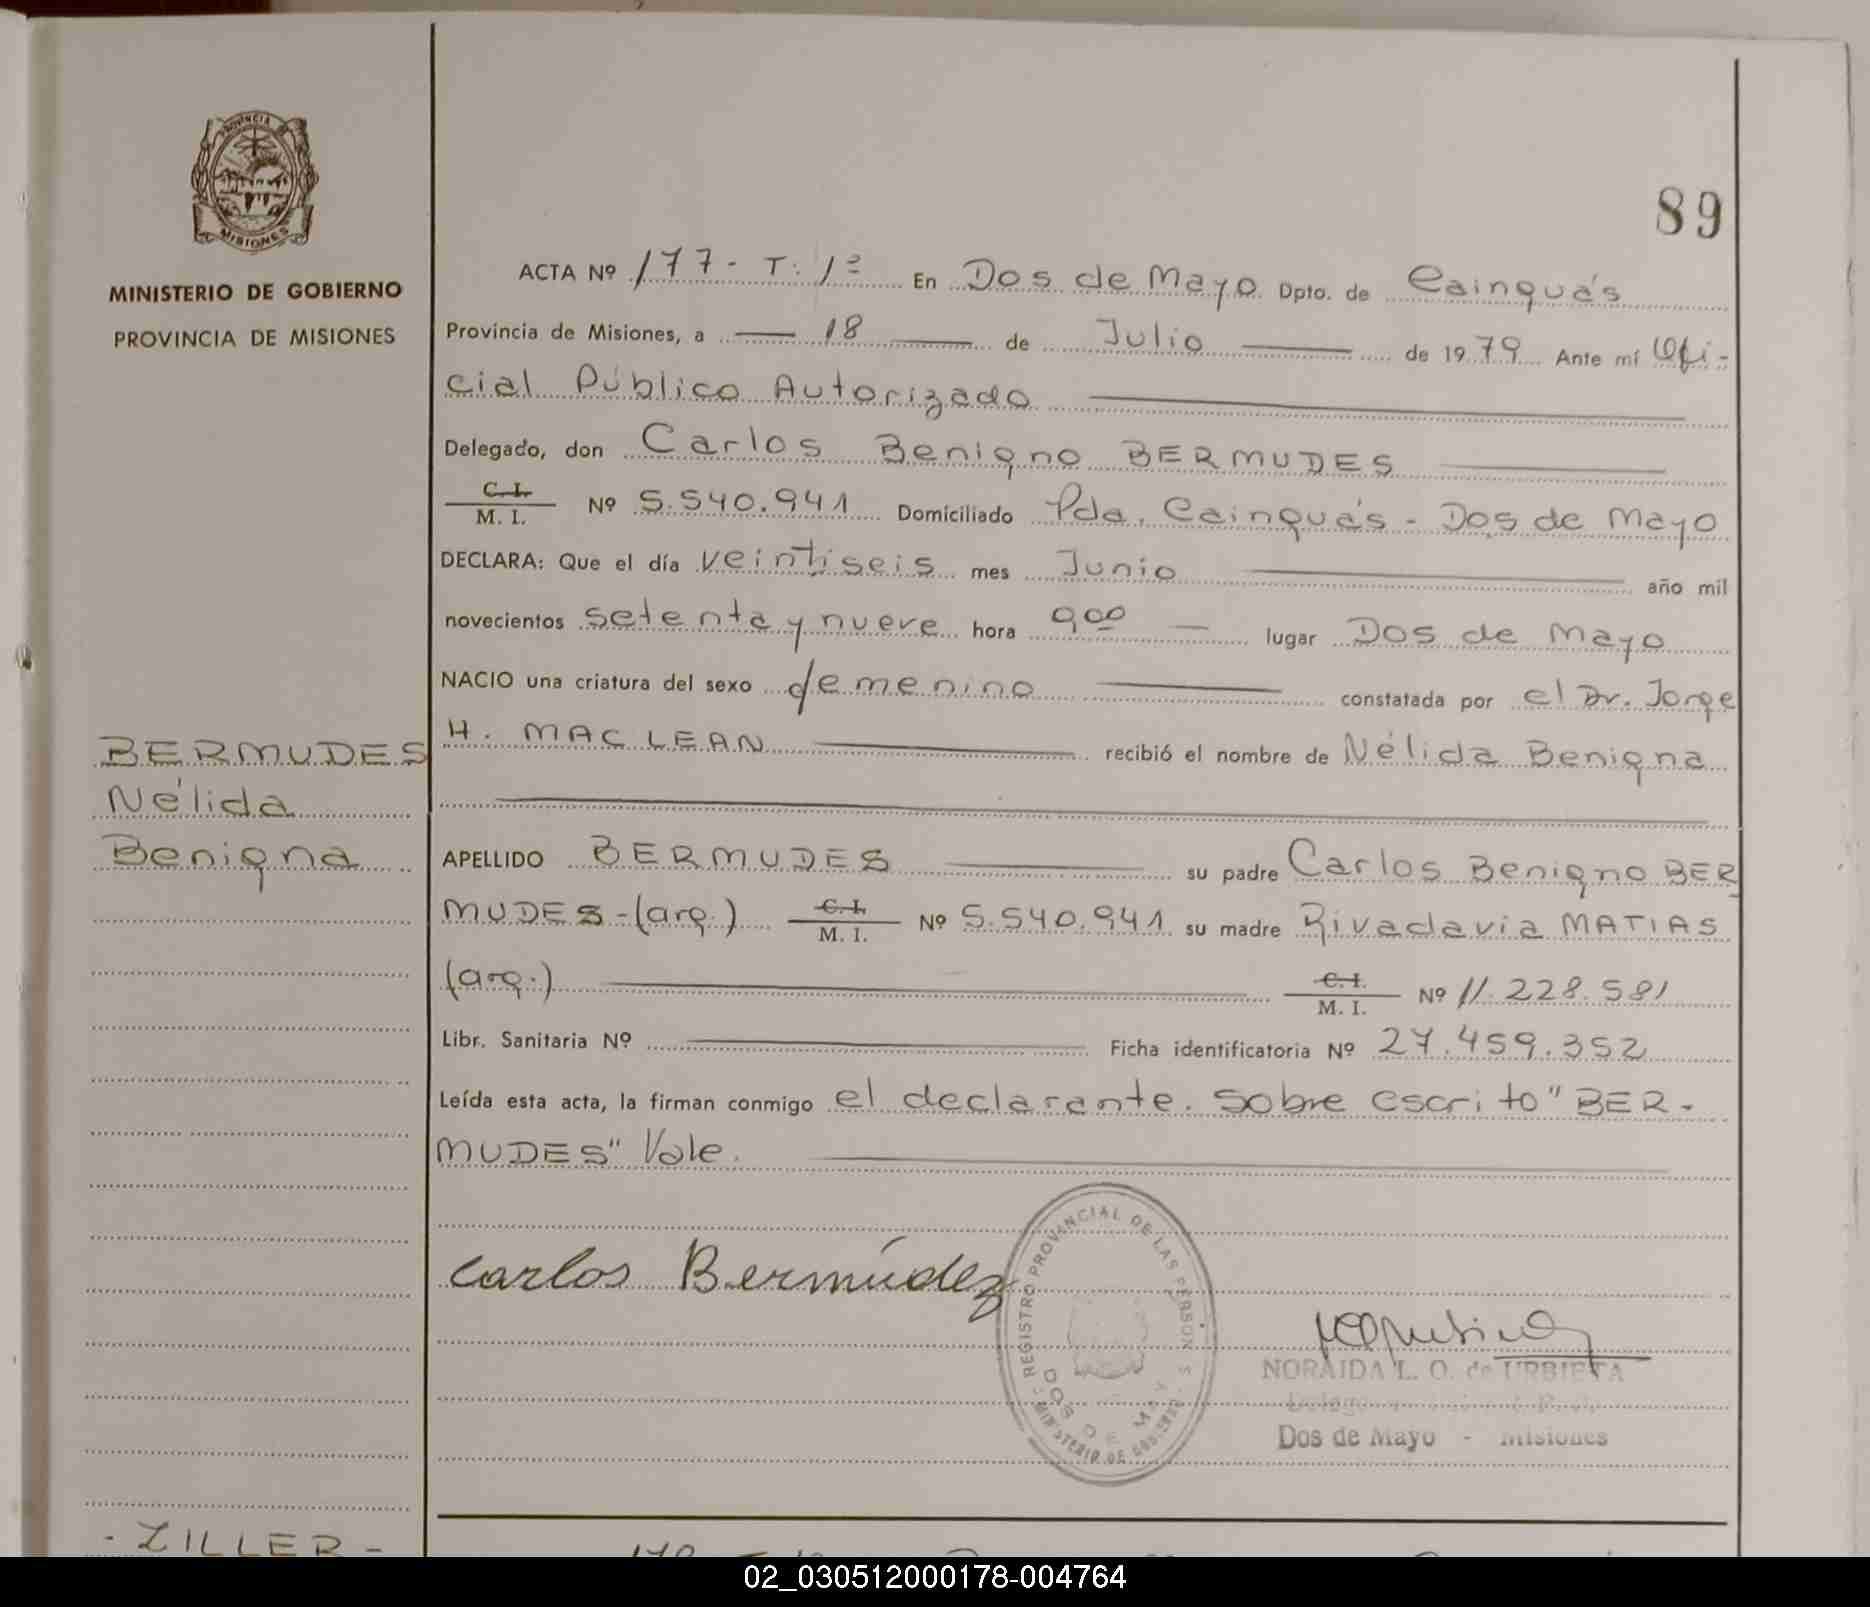 PROVINCIA DE
MISIONES
MINISTERIO DE GOBIERNO
PROVINCIA DE MISIONES
BERMUDES
Nélida
Benigna
- ZILLER -
89
ACTA Nº 177- T: 1º En Dos de Mayo Dpto. de Cainguás
Provincia de Misiones, a 18 de Julio de 1979 Ante mí Ofi-
cial Público Autorizado
Delegado, don Carlos Benigno BERMUDES
C. I. / M. I. Nº 5.540.941 Domiciliado Pda. Cainguás - Dos de Mayo
DECLARA: Que el día veintiseis mes Junio año mil
novecientos setenta y nueve hora 9 00 lugar Dos de Mayo
NACIO una criatura del sexo femenino constatada por el Dr. Jorge
H. MAC LEAN recibió el nombre de Nélida Benigna
APELLIDO BERMUDES su padre Carlos Benigno BER
MUDES-(arg.) C. I. / M. I. Nº 5.540.941 su madre Rivadavia MATIAS
(arg.) C. I. / M. I. Nº 11.228.581
Libr. Sanitaria Nº Ficha identificatoria Nº 27.459.352
Leída esta acta, la firman conmigo el declarante. Sobre escrito "BER-
MUDES" Vale.
Carlos Bermúdez
REGISTRO PROVINCIAL DE LAS PERSONAS
DOS DE MAYO
MINISTERIO DE GOBIERNO
NORAIDA L. O. de URBIETA
Dos de Mayo - Misiones
02_030512000178-004764